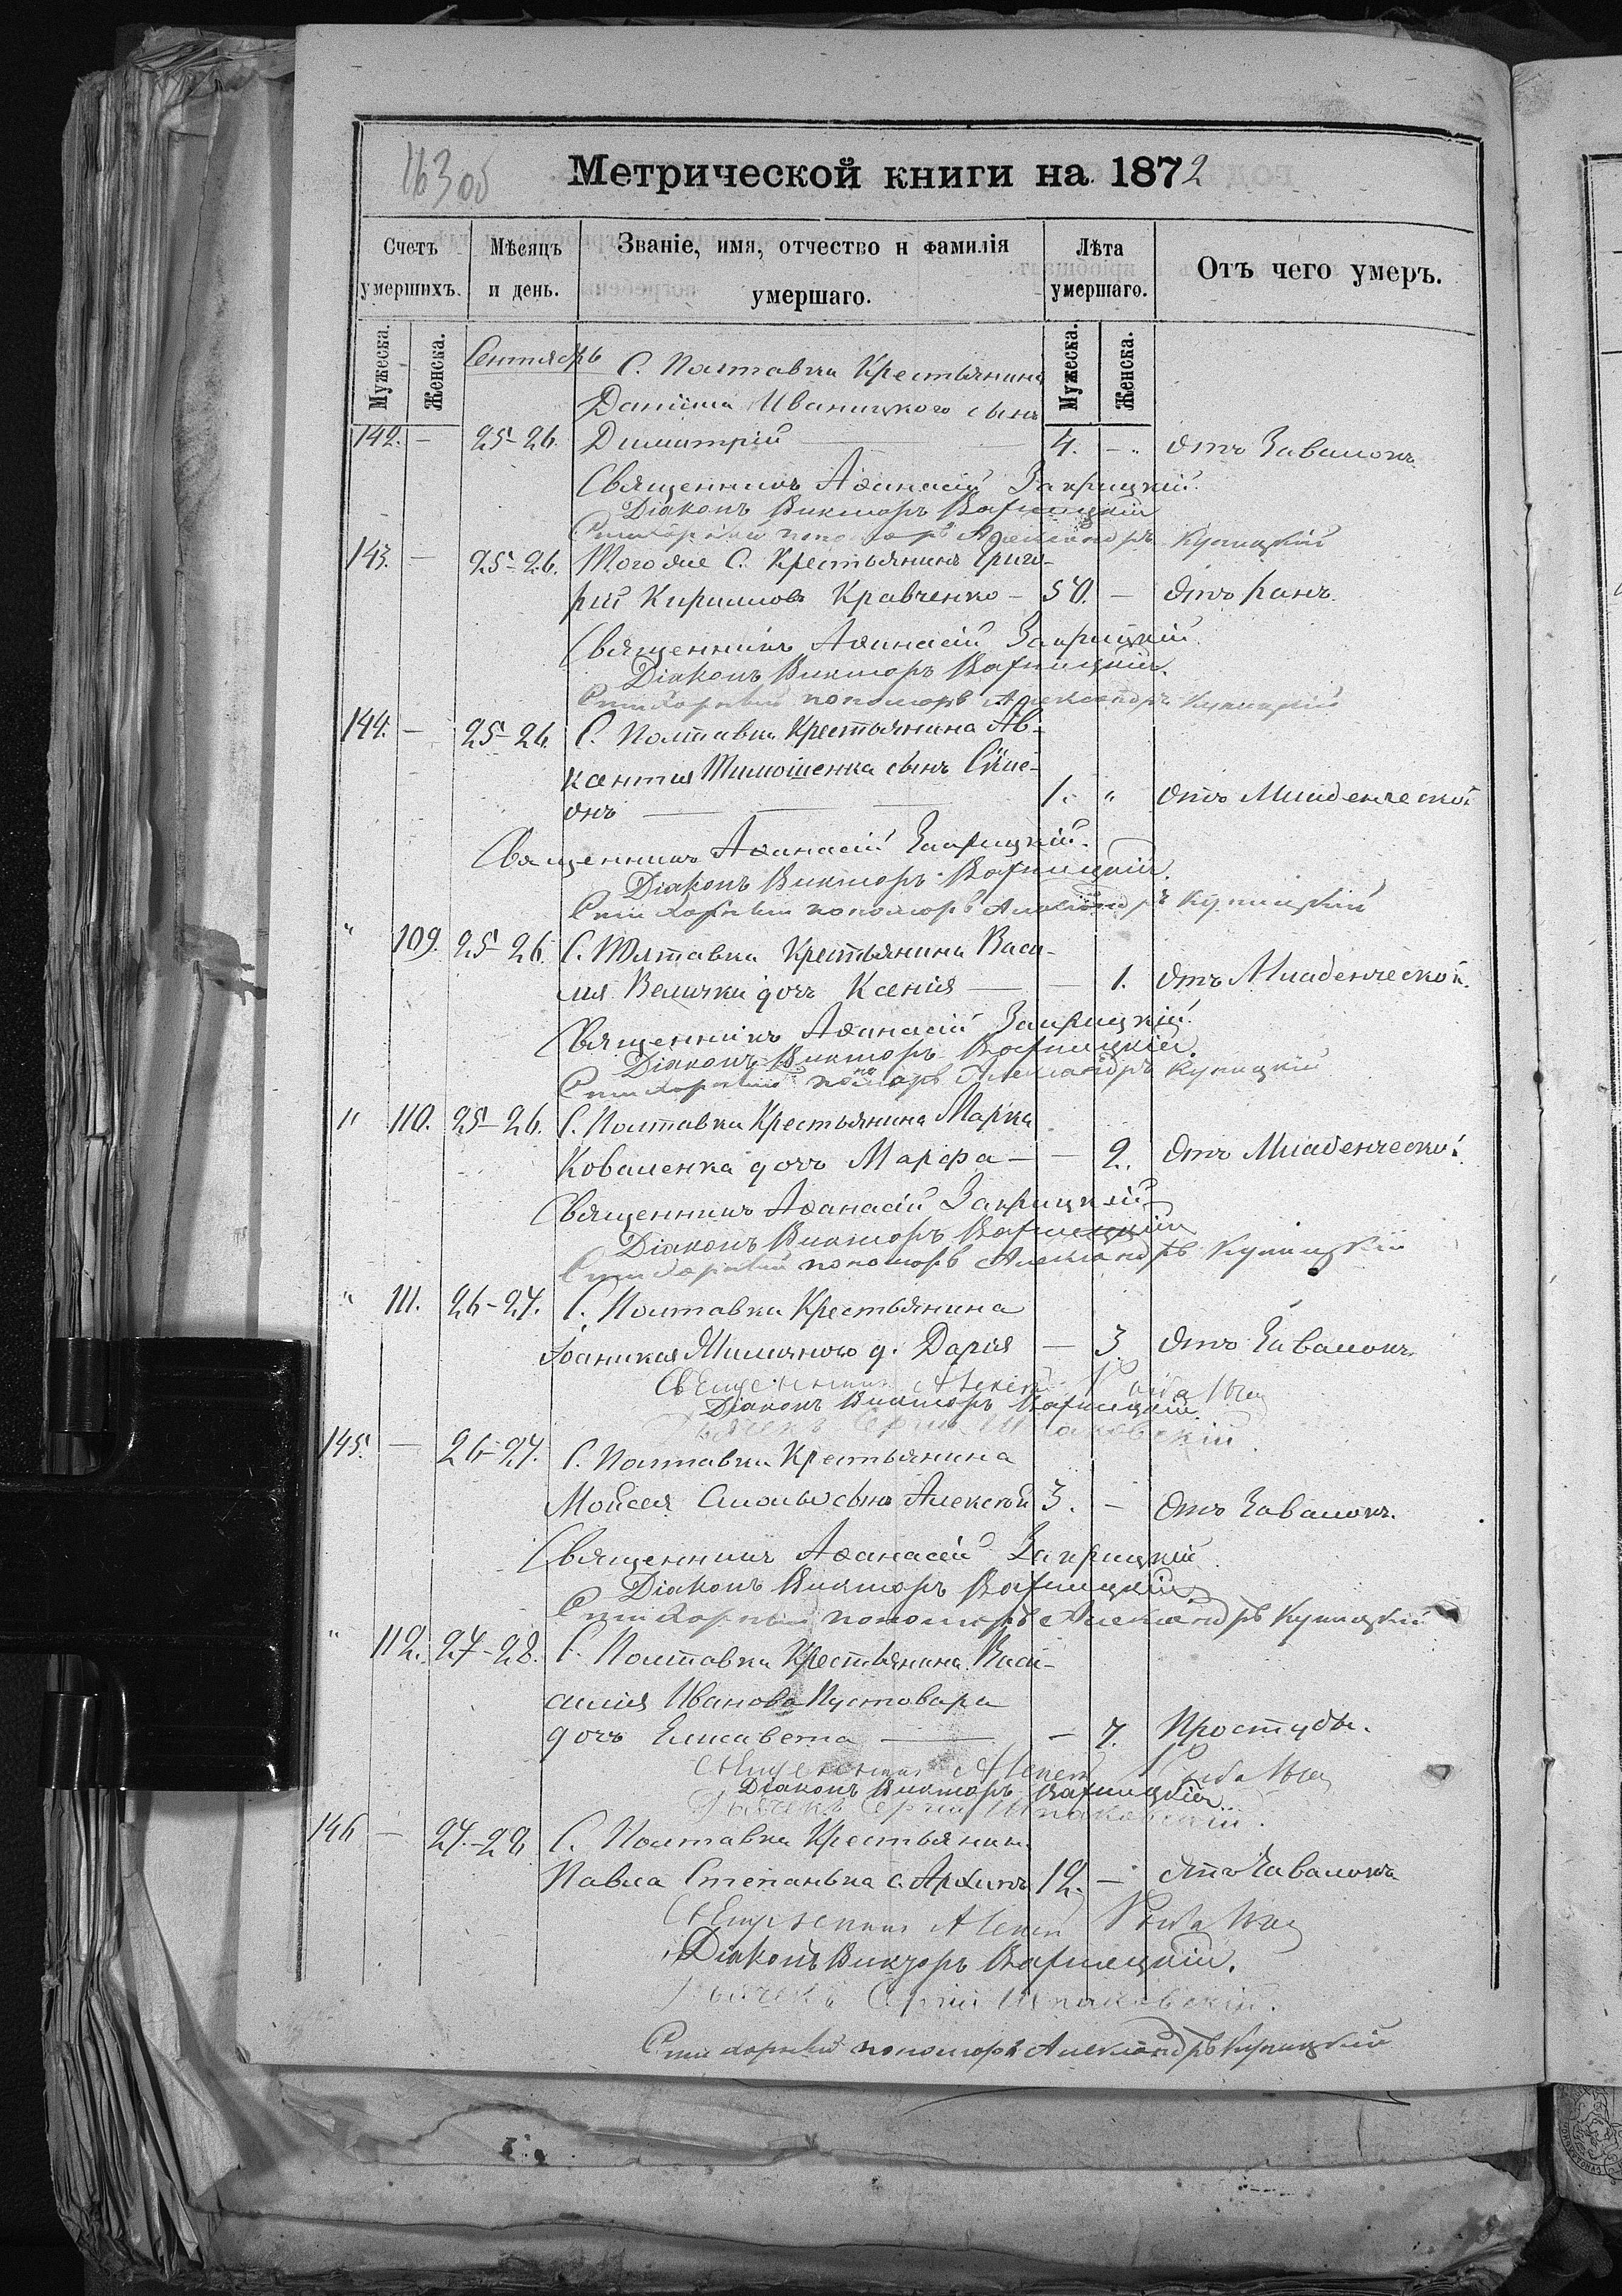 163об
Метрической книги на 1872
Счетъ умершихъ.
Мѣсяцъ и день.
Званіе, имя, отчество и фамилія умершаго.
Лѣта умершаго.
Отъ чего умеръ.
Мужеска. Женска. Мужеска. Женска.
Сентябрь
С. Полтавки Крестьянина
Даніила Иваницкого сынъ
142. — 25-26. Димитрій — 4. — отъ Завалокъ
Священникъ Аѳанасій Закрицкій.
Діаконъ Викторъ Варницкій
Стихарный пономарь Александръ Куницкій
143. — 25-26. Тогоже С. Крестьянинъ Григо-
рій Кирилловъ Кравченко — 50. — отъ ранъ.
Священникъ Аѳанасій Закрицкій.
Діаконъ Викторъ Варницкій.
Стихарный пономарь Александръ Куницкій
144. — 25-26. С. Полтавки Крестьянина Ав-
ксентія Тимошенка сынъ Симе-
онъ — 1. " отъ Младенческой
Священникъ Аѳанасій Закрицкій.
Діаконъ Викторъ Варницкій.
Стихарный пономарь Александръ Куницкій
" 109. 25-26. С. Полтавки Крестьянина Васи-
лія Велички дочь Ксенія — — 1. отъ Младенческой.
Священникъ Аѳанасій Закрицкій.
Діаконъ Викторъ Варницкій.
Стихарный пономарь Александръ Куницкій
" 110. 25-26. С. Полтавки Крестьянина Марка
Коваленка дочь Марфа — — 2. отъ Младенческой
Священникъ Аѳанасій Закрицкій
Діаконъ Викторъ Варницкій
Стихарный пономарь Александръ Куницкій
" 111. 26-27. С. Полтавки Крестьянина
Іоаникія д. Дарія — 3. отъ Завалокъ.
Священникъ Алексій
Діаконъ Викторъ Варницкій.
Дьячекъ Сергій Шпаковскій.
145. — 26-27. С. Полтавки Крестьянина
Мойсея сынъ Алексѣй 3. — отъ Завалокъ.
Священникъ Аѳанасій Закрицкій
Діаконъ Викторъ Варницкій.
Стихарный пономарь Александръ Куницкій
" 112. 27-28. С. Полтавки Крестьянина Васи-
силія Иванова Пустовара
дочь Елисавета — — 7. Простуды.
Священникъ Алексій
Діаконъ Викторъ Варницкій
Дьячекъ Сергій Шпаковскій.
146 — 27-28 С. Полтавки Крестьянина
Павла Степанька с. Архипъ 12. — отъ Завалокъ
Священникъ Алексій
Діаконъ Викторъ Варницкій.
Дьячекъ Сергій Шпаковскій.
Стихарный пономарь Александръ Куницкій